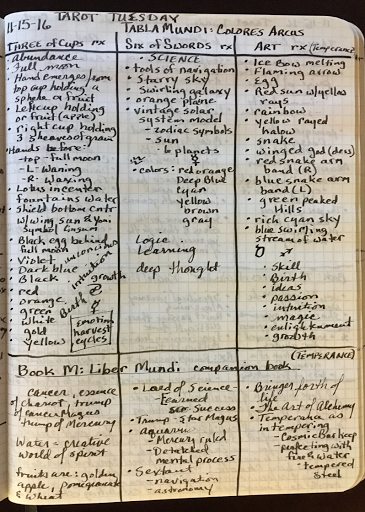 TAROT TUESDAY
11-15-16
TABLA MUNDI: COLORES ARCUS
THREE of CUPS rx
Abundance
Full moon
Hand emerges from
top cup holding a
sphere or fruit
Left cup holding
or fruit (apple)
right cup holding
3 sheaves of grain
Hands before:
-top-full moon
-L-Waning
-R-Waxing
Lotus in center
fountains water
Shield bottom cntr
w/wing sun &
symbol
Black egg behind
full moon
Violet
Dark blue
Black
red
orange
green
white
gold
yellow
unconscious
intuition
growth
Birth
Emotion
harvest
cycles
SIX of SWORDS rx
SCIENCE
tools of navigation
Starry sky
Swirling galaxy
orange plane
vintage solar
system model
-zodiac symbols
-sun
-6 planets
colors: red orange
Deep Blue
cyan
yellow
brown
gray
Logic
Learning
deep thought
ART rx (Temperance)
Ice Bow melting
Flaming arrow
Egg
Red sun w/yellow
rays
rainbow
yellow rayed
halow
snake
winged god (dess)
red snake arm
band (R)
blue snake arm
band (L)
green peaked
Hills
rich cyan sky
blue swirling
stream of water
Skill
Birth
ideas
passion
intuition
magic
enlightenment
growth
Book M: Liber Mundi companion book
cancer, essence
of chariot, trump
of cancer Magus
trump of Mercury
Water = creative
world of spirit
fruits are: golden
apple, pomegranate
& wheat
Lord of Science
-Earned
Success
Trump - Star Magus
aquarius
-Mercury ruled
-Detached
mental process
Sextant
-navigation
-astronomy
(TEMPERANCE)
Bringer forth of
life
The Art of Alchemy
Temperance as
tempering
-Cosmic Barkeep
perfecting with
fire & water
-tempered
Steel